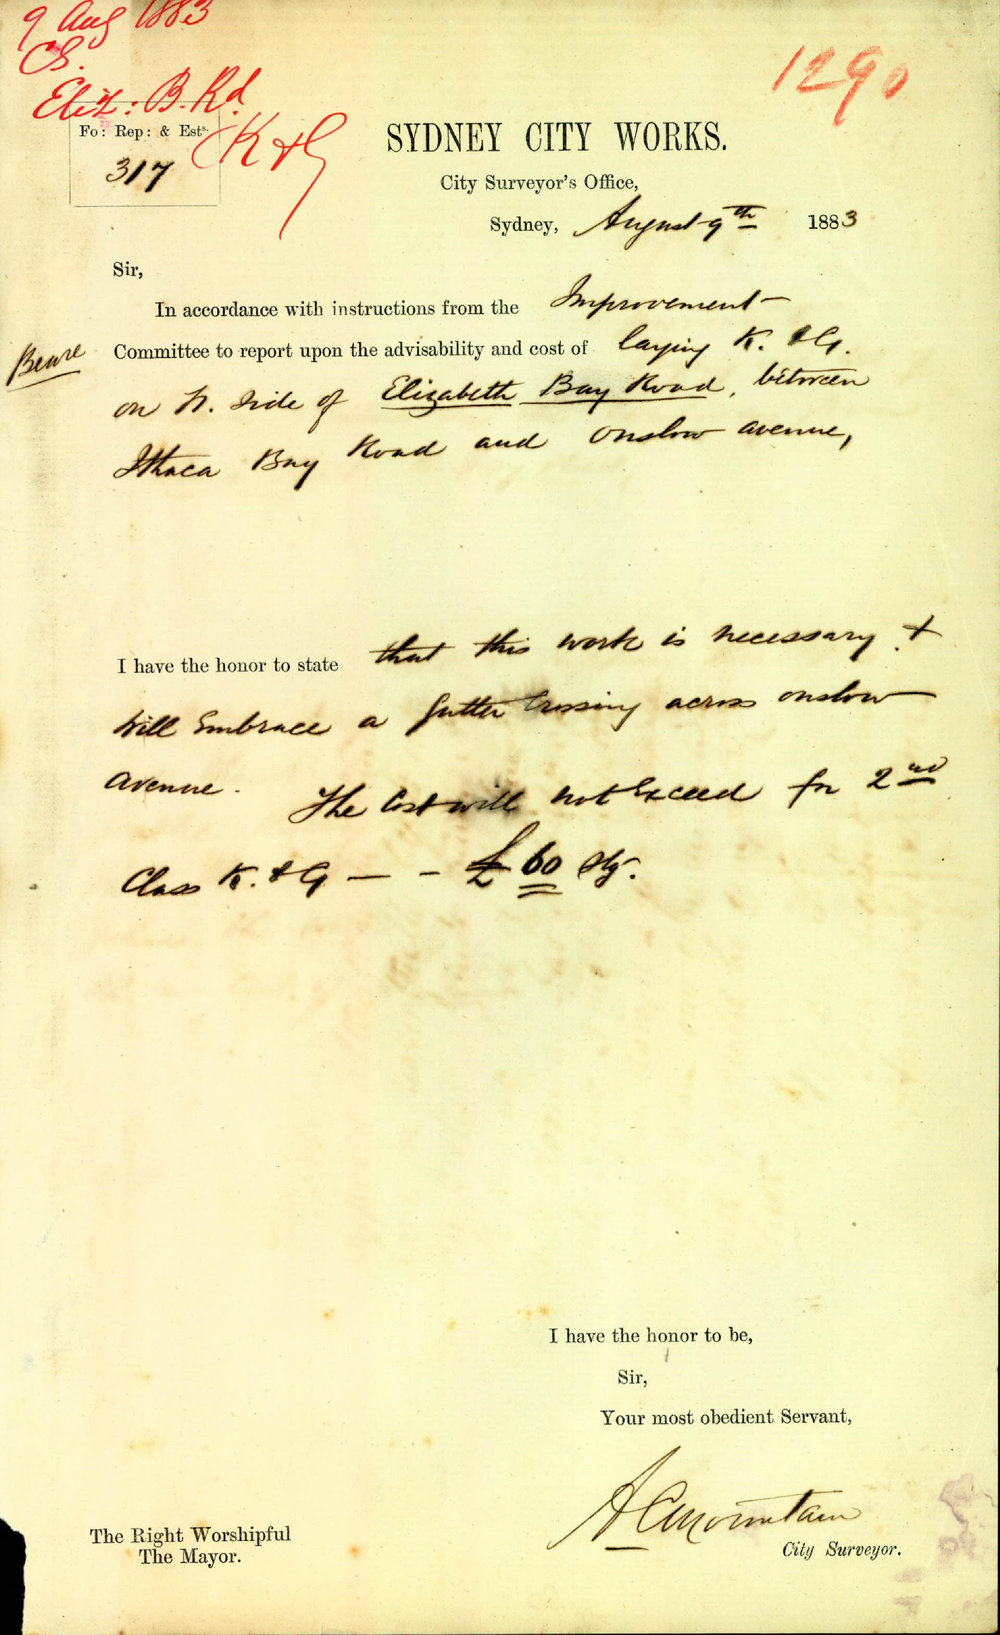 9 Aug 1883
CS.
Eliz: B. Rd
K & G
1290
Fo: Rep: & Ests.
317
SYDNEY CITY WORKS.
City Surveyor's Office,
Sydney, August 9th 1883
Sir,
In accordance with instructions from the Improvement
Committee to report upon the advisability and cost of laying K. & G.
Beare
on N. Side of Elizabeth Bay Road, between
Ithaca Bay Road and Onslow avenue,
I have the honor to state that this work is necessary &
will Embrace a gutter Crossing across onslow
avenue. The Cost will not Exceed for 2nd
Class K. & G — - £60 Stg.
I have the honor to be,
Sir,
Your most obedient Servant,
A C Mountain
City Surveyor.
The Right Worshipful
The Mayor.